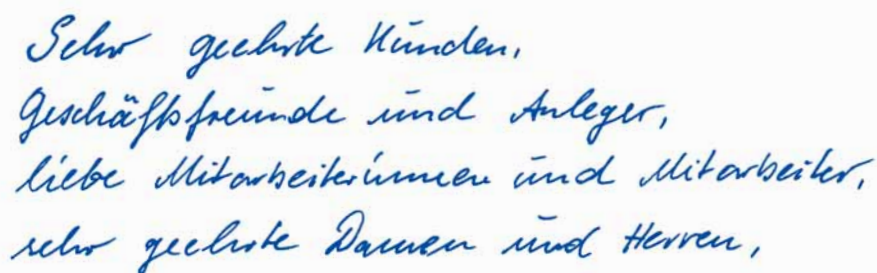 Sehr geehrte Kunden,
Geschäftsfreunde und Anleger,
liebe Mitarbeiterinnen und Mitarbeiter,
sehr geehrte Damen und Herren,